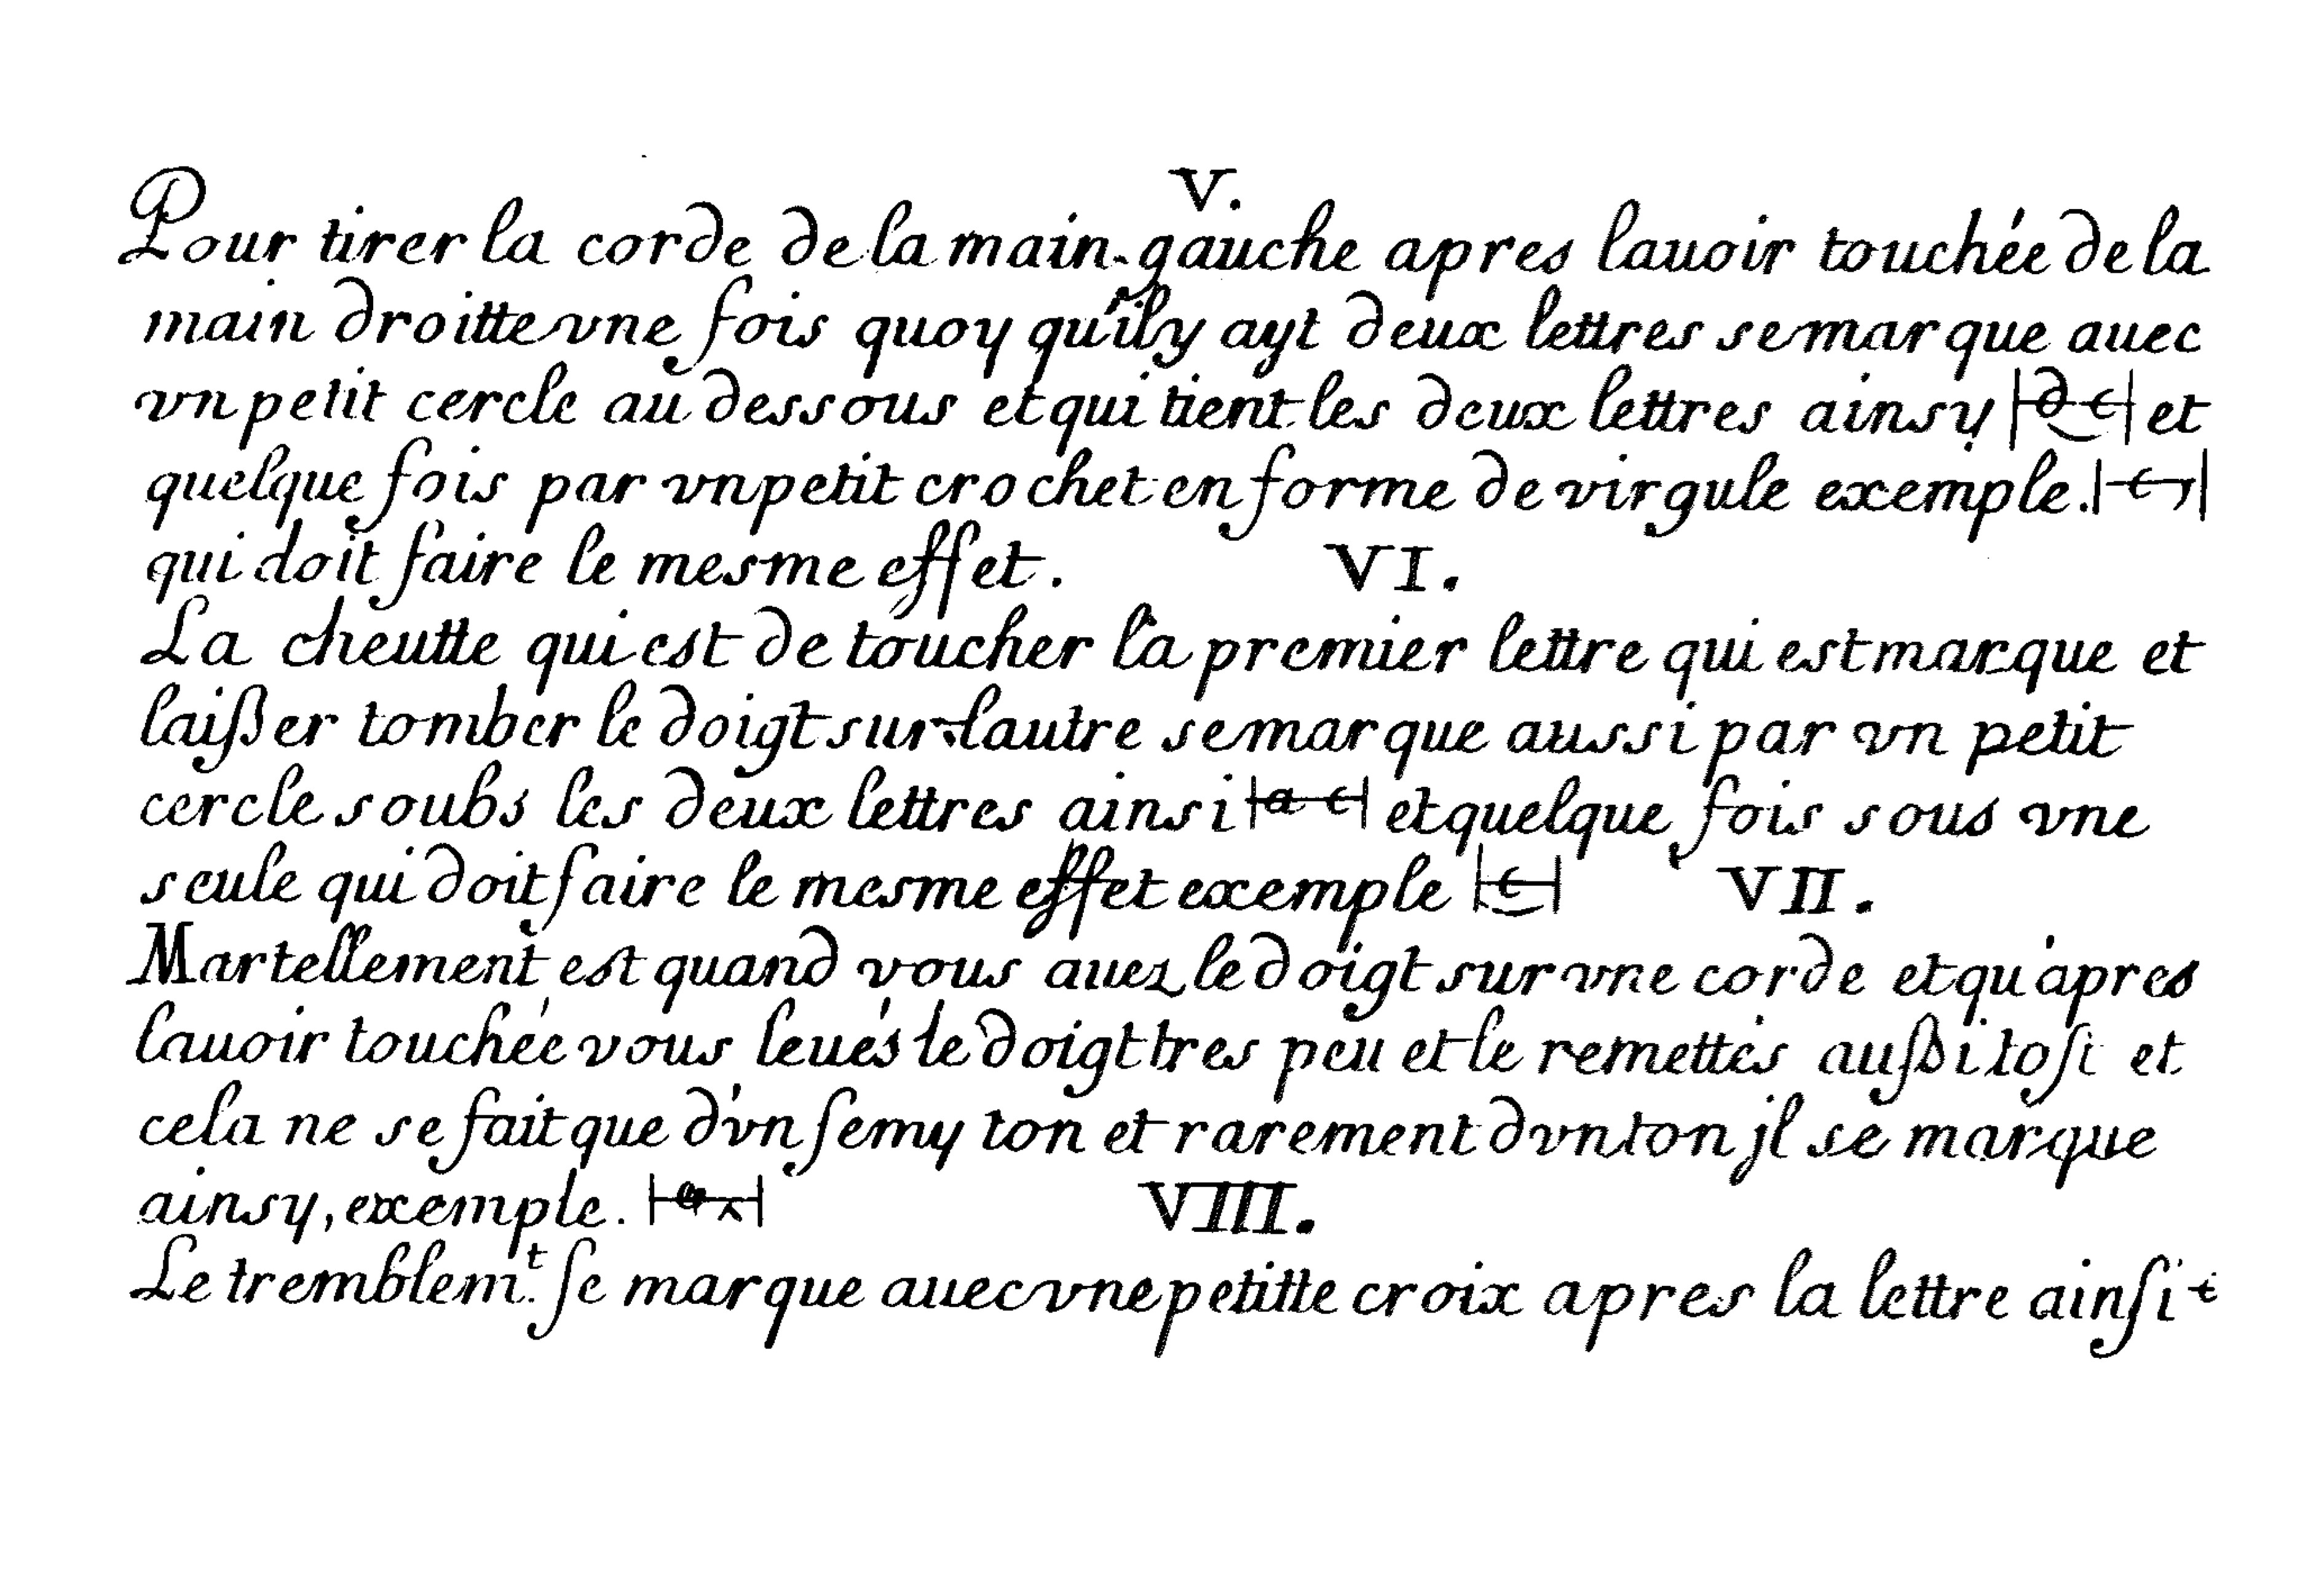 V.
Pour tirer la corde de la main gauche apres lauoir touchée de la
main droitte vne fois quoy qu'il y ayt deux lettres se marque auec
vn petit cercle au dessous et qui tient les deux lettres ainsy |d c| et
quelque fois par vn petit crochet en forme de virgule exemple. |c ,|
qui doit faire le mesme effet. VI.
La cheutte qui est de toucher la premier lettre qui est marque et
laißer tomber le doigt sur lautre se marque aussi par vn petit
cercle soubs les deux lettres ainsi |a c| et quelque fois sous vne
seule qui doit faire le mesme effet exemple |c| VII.
Martellement est quand vous auez le doigt sur vne corde et qu'apres
lauoir touchée vous leués le doigt tres peu et le remettés außi tost et
cela ne se fait que d'vn semy ton et rarement dvn ton jl se marque
ainsy, exemple. VIII.
Le tremblem.t se marque auec vne petitte croix apres la lettre ainsi c